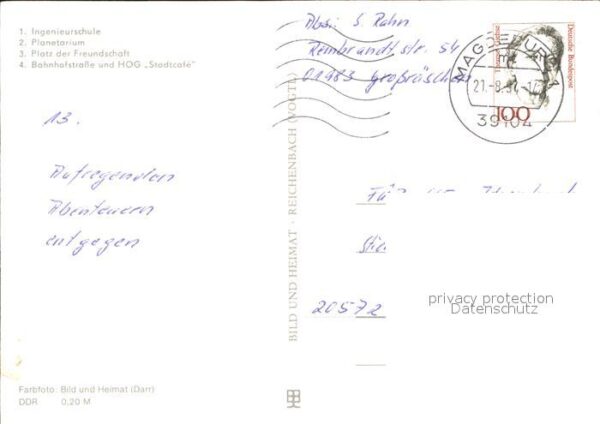 1. Ingenieurschule
2. Planetarium
3. Platz der Freundschaft
4. Bahnhofstraße und HOG „Stadtcafé"
Abs: S. Rahn
Rembrandtstr. 54
01983 Großräschen
MAGDEBURG
21.-8.94.-17
39104
Deutsche Bundespost
100
13.
Aufregenden
Abenteuern
entgegen
BILD UND HEIMAT · REICHENBACH (VOGTL)
20572
privacy protection
Datenschutz
Farbfoto: Bild und Heimat (Darr)
DDR 0,20 M